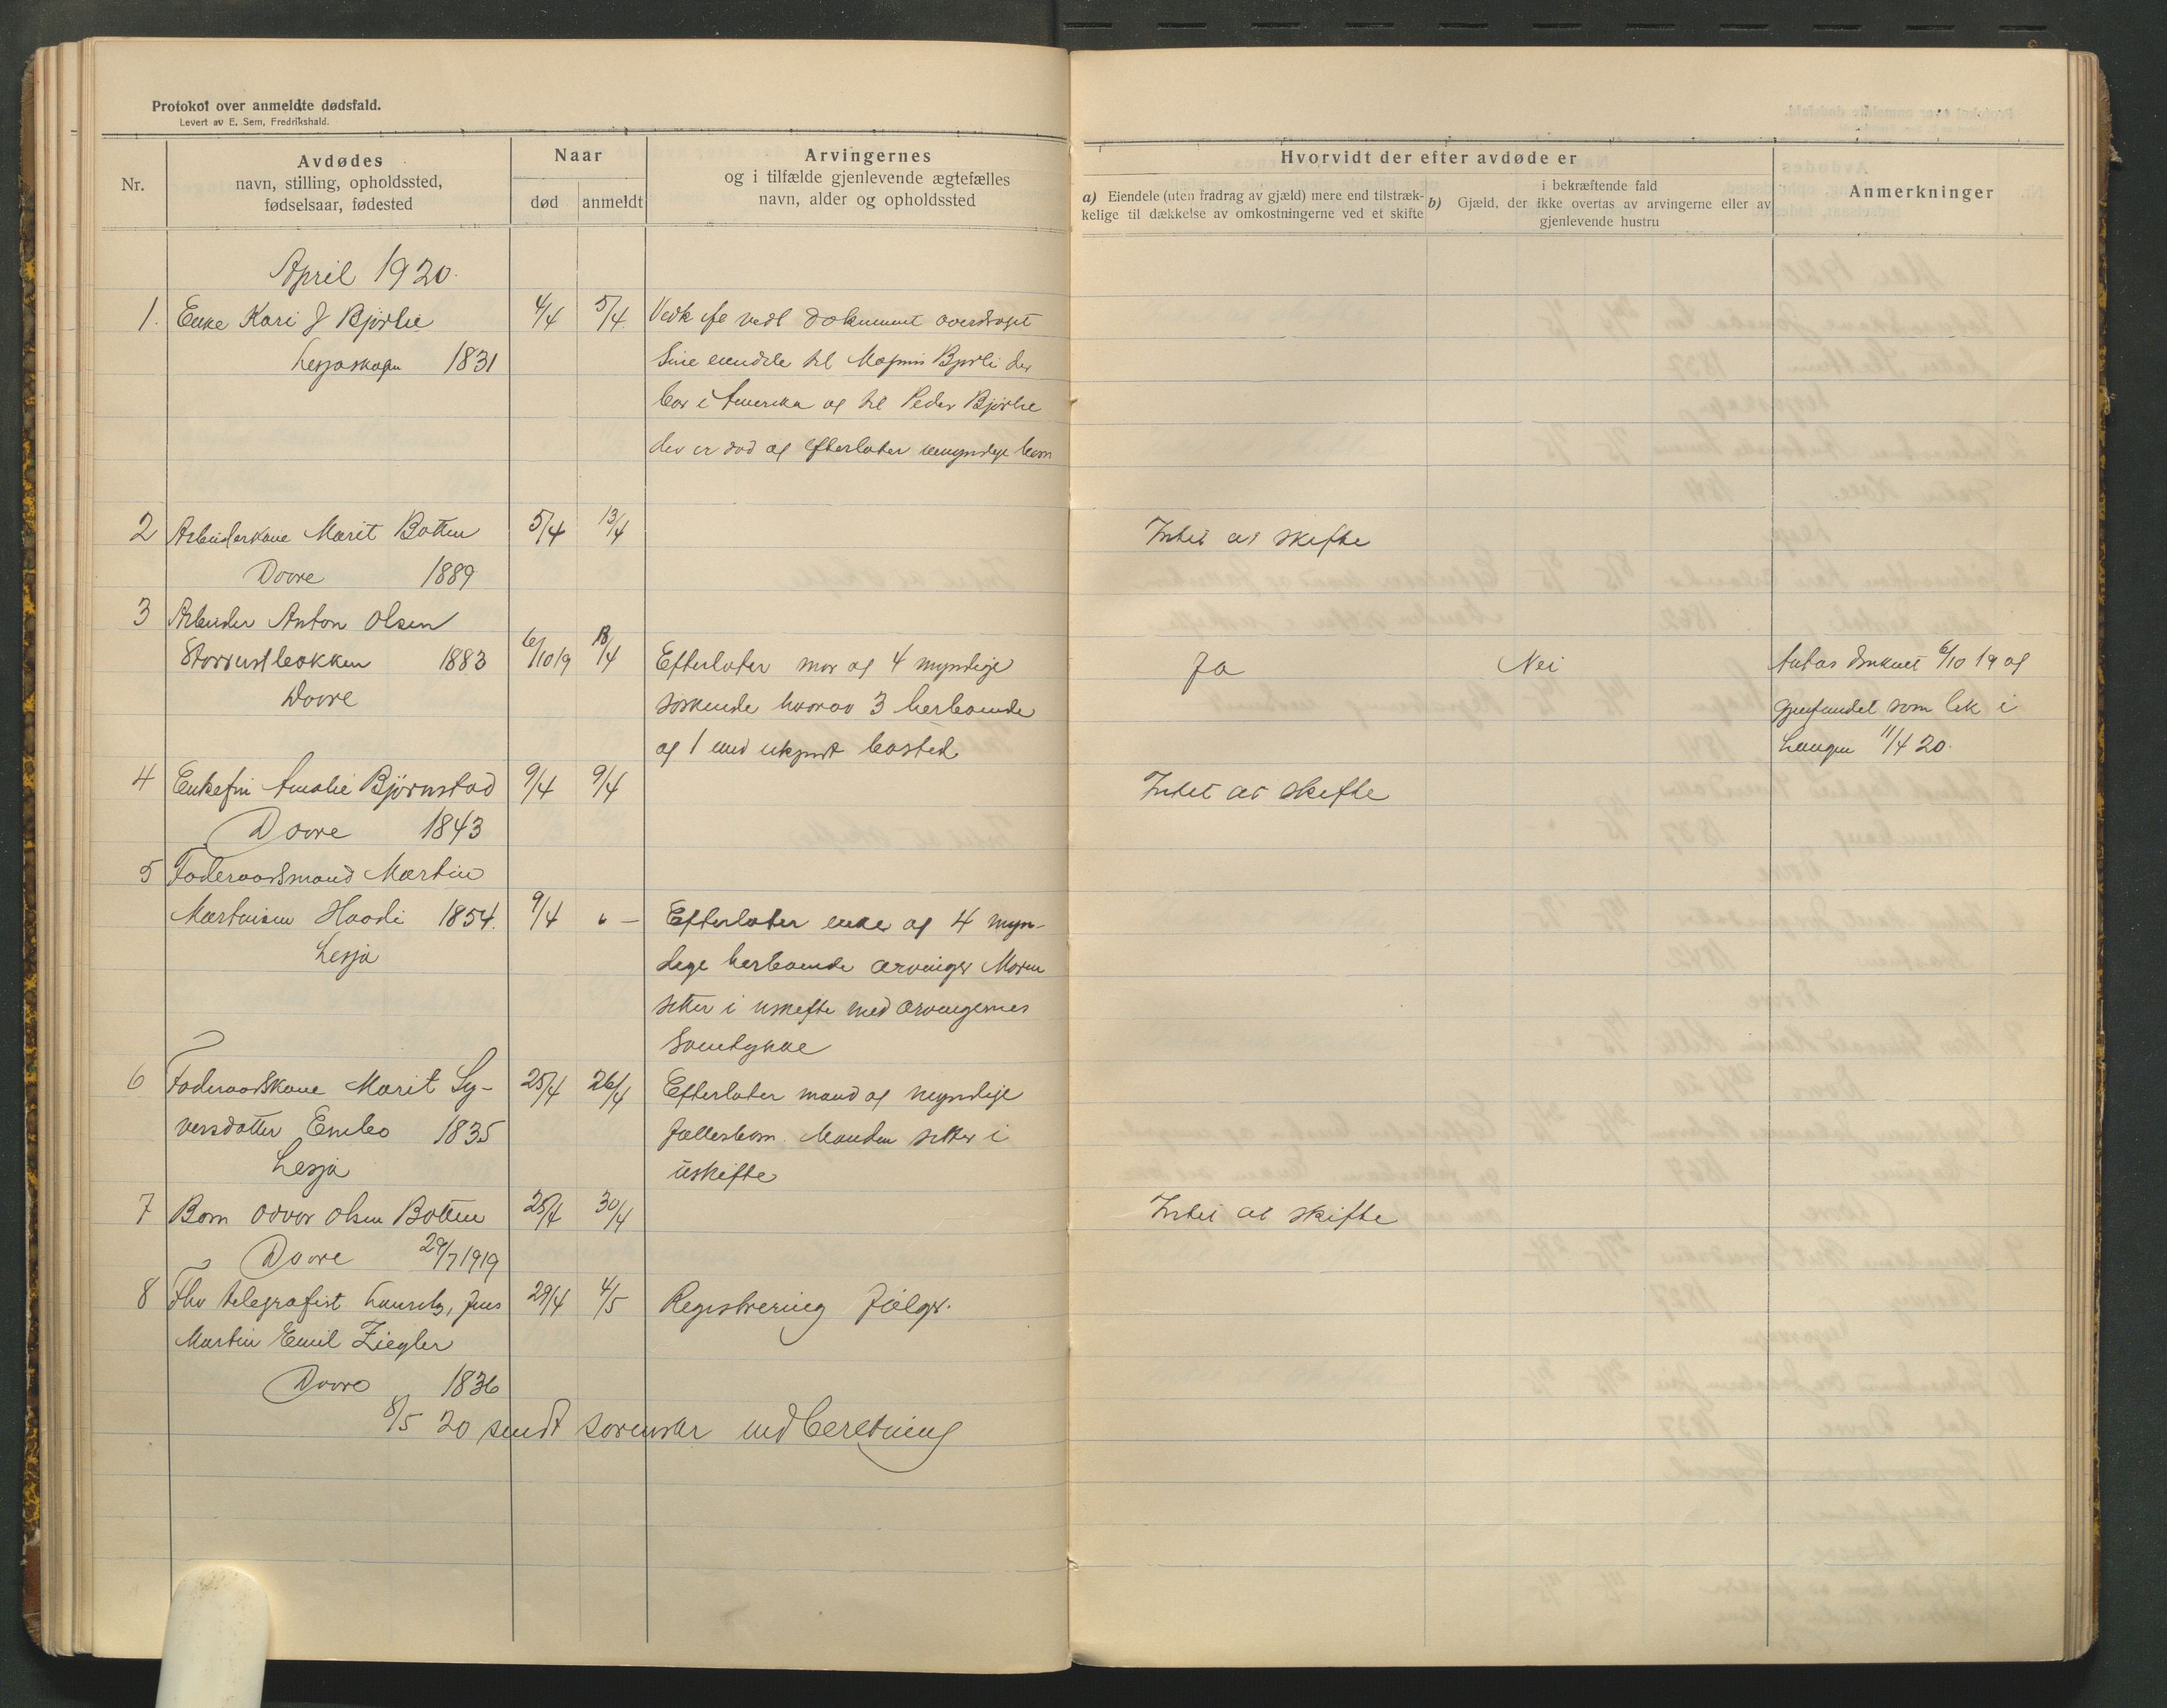 Protokol over anmeldte dødsfald.
Levert av E. Sem, Fredrikshald.
Nr.
Avdødes
navn, stilling, opholdssted,
fødselsaar, fødested
Naar
død
anmeldt
Arvingernes
og i tilfælde gjenlevende ægtefælles
navn, alder og opholdssted
Hvorvidt der efter avdøde er
a) Eiendele (uten fradrag av gjæld) mere end tilstræk-
kelige til dækkelse av omkostningerne ved et skifte
i bekræftende fald
b) Gjæld, der ikke overtas av arvingerne eller av
gjenlevende hustru
Anmerkninger
April 1920.
1. Enke Kari J Bjørlie 4/4 5/4 dokument overdraget
Lesjaskogn 1831 Sine eiendele til Magnus Bjorli der
bor i Amerika og til Peder Bjørlie
der er død og efterlater umyndige born
2 Arbeiderkone Marit Botten 5/4 13/4 Intet at skifte
Dovre 1889
3 Arbeider Anton Olsen
1883 6/10 19 /4 Efterlater mor og 4 myndige Ja Nei Antas druknet 6/10 19 og
Dovre søskende hvorav 3 herboende gjenfundet som lik i
og 1 med ukjendt bosted Laagen 11/4 20.
4 Enkefru Amalie Bjørnstad 9/4 9/4 Intet at skifte
Dovre 1843
5 Foderaadsmand Martin
Martinsen Haadi 1854. 9/4 " — Efterlater enke og 4 myn-
Lesja dige herboende arvinger Moren
sitter i uskifte med arvingernes
Samtykke
6 Foderaadskone Marit Sy- 25/4 26/4 Efterlater mand og myndige
versdatter Enebo 1835 fællesborn. Manden sitter i
Lesja uskifte
7 Barn Odvar Olsen Botten 28/4 30/4 Intet at skifte
Dovre 29/7 1919
8 Fhv telegrafist Lauritz, Jens 29/4 4/5 Registrering følger.
Martin Emil Ziegler
Dovre 1836
8/5 20 sendt sorenskr indberetning